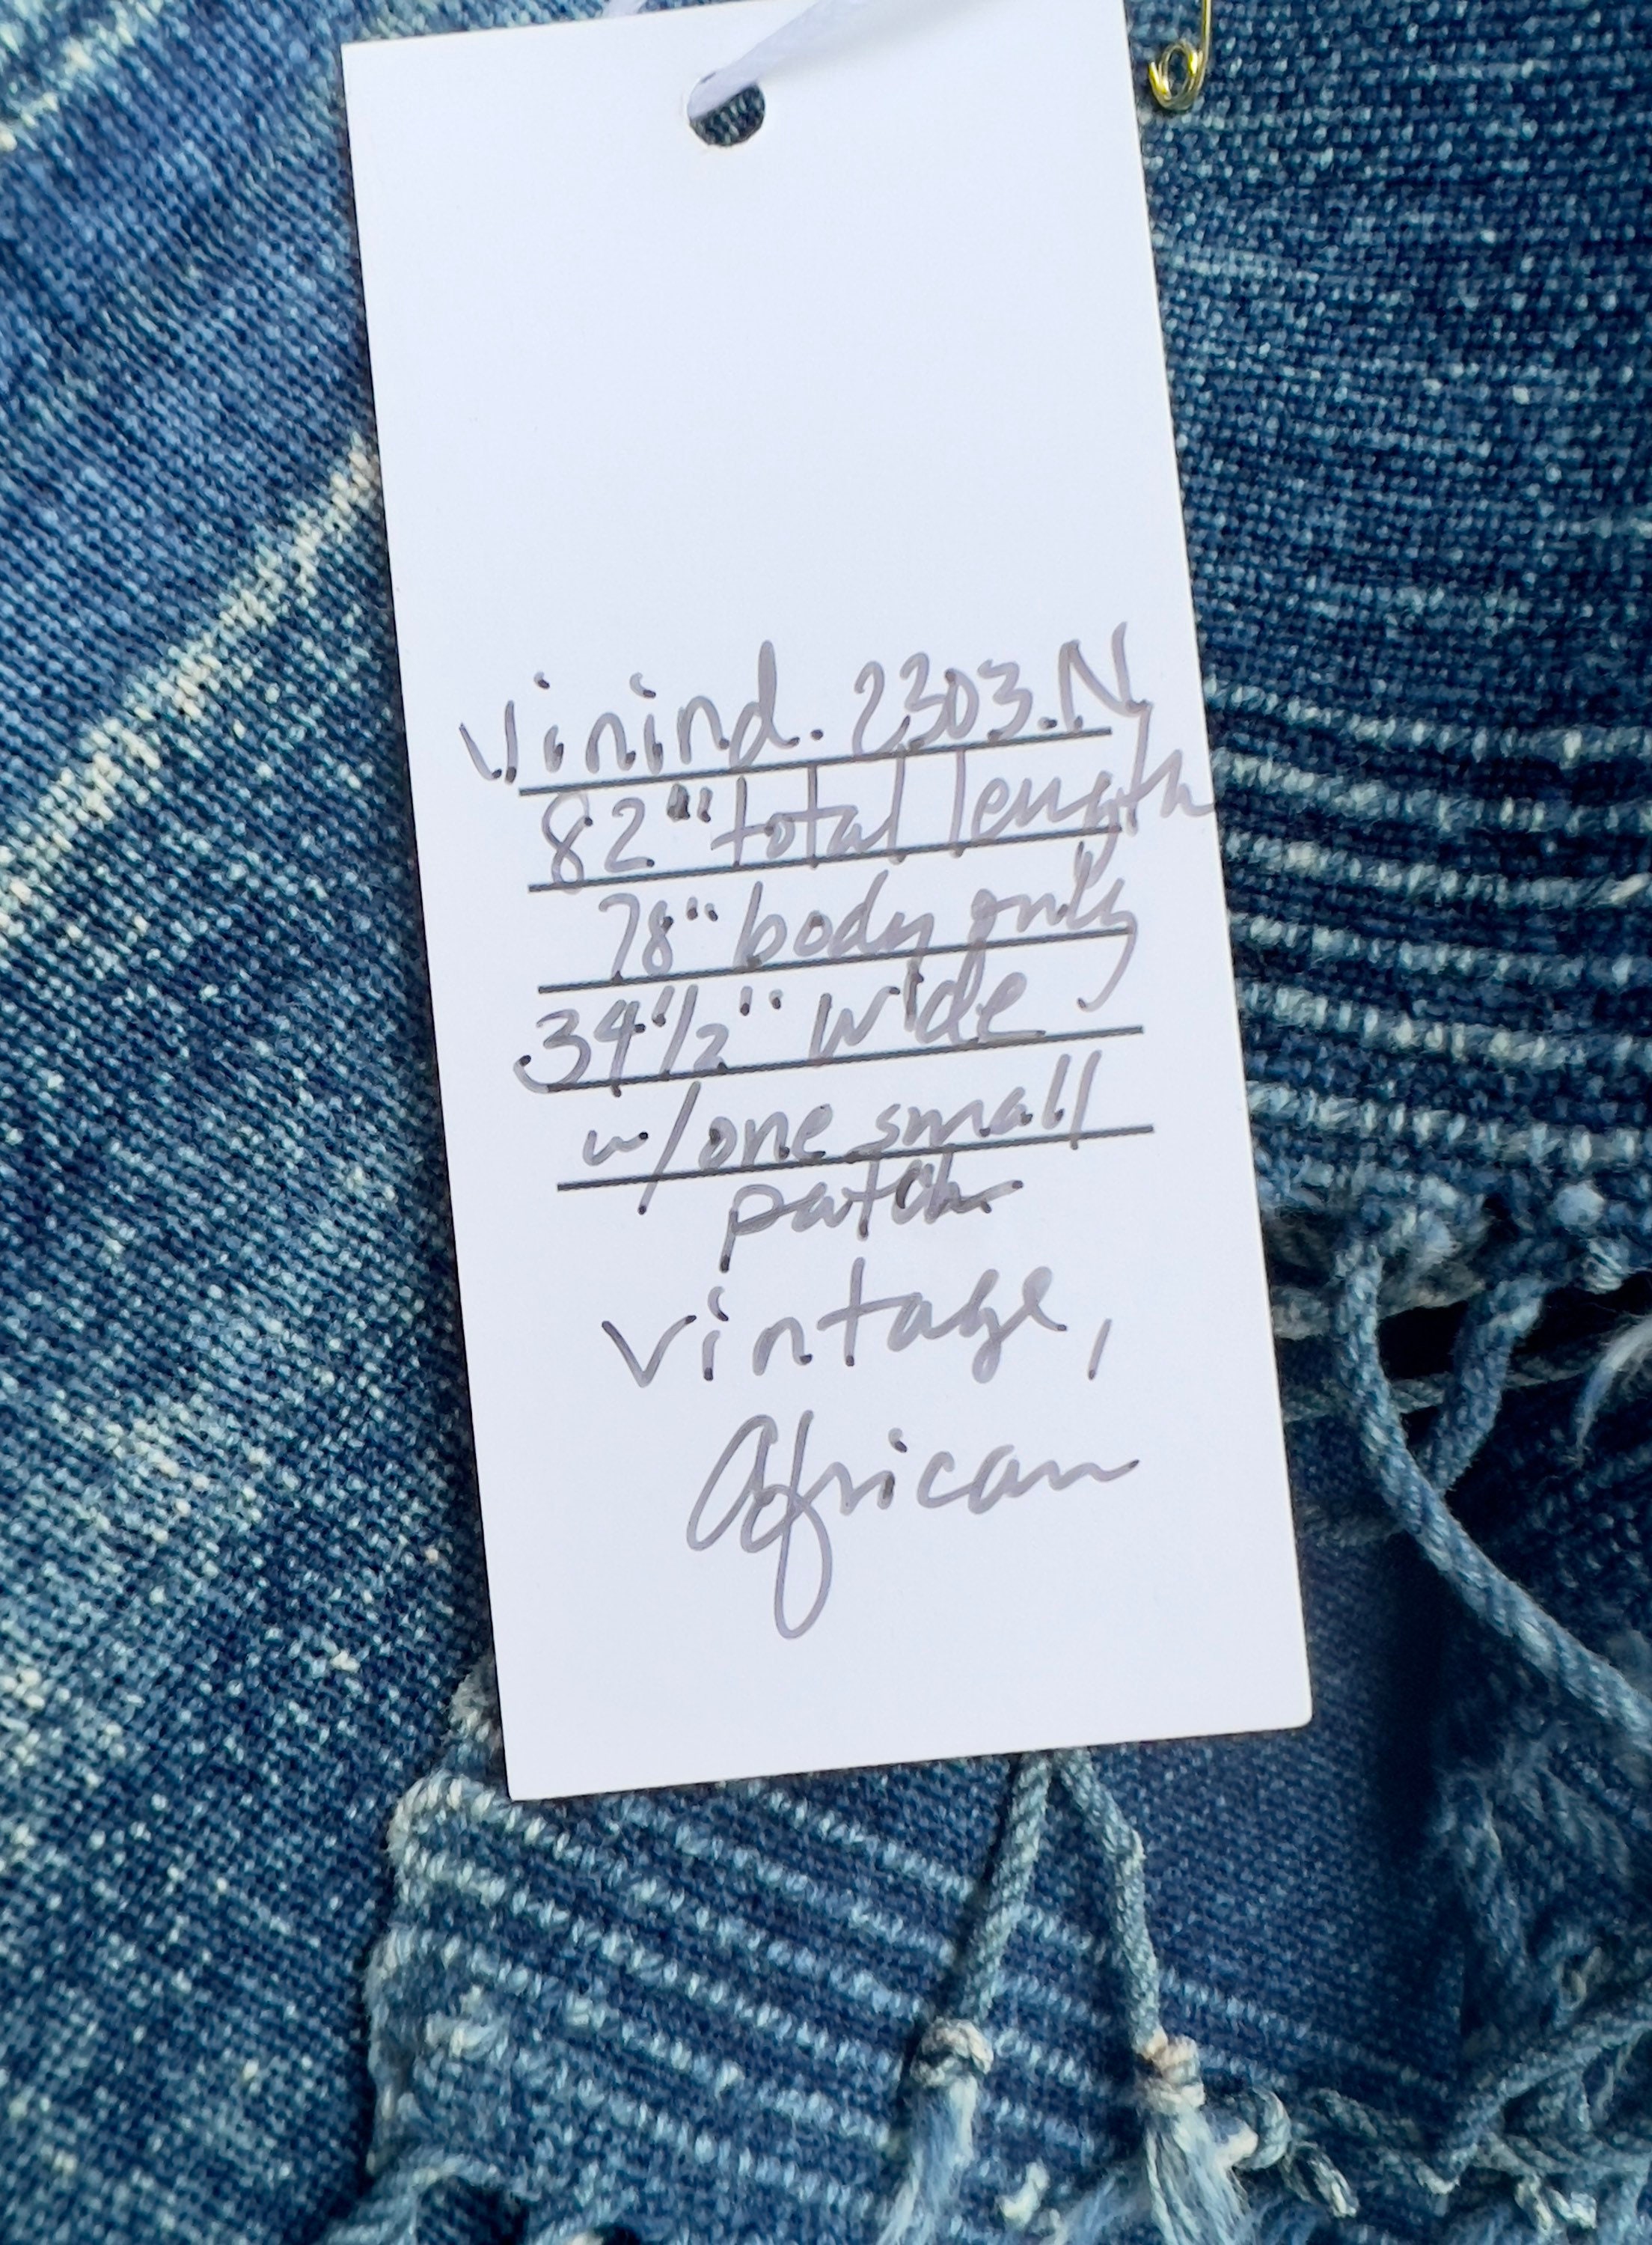 Vinind. 2303.N
82" total length
78" body only
34 1/2" wide
w/one small
patch
vintage,
African